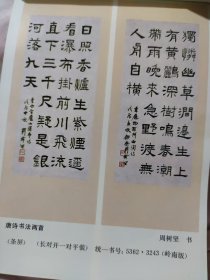 獨憐幽草澗邊生上
有黃鸝深樹鳴春潮
帶雨晚來急野渡無
人舟自橫
日照香爐生紫煙遙
看瀑布掛前川飛流
直下三千尺疑是銀
河落九天
唐诗书法两首 周树坚 书
（条屏） （长对开一对平装） 统一书号：5362·3243（岭南版）